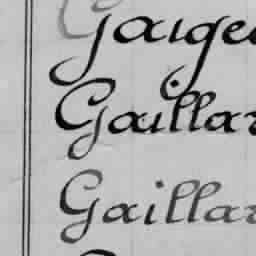 Gaige
Gaillar
Gaillar